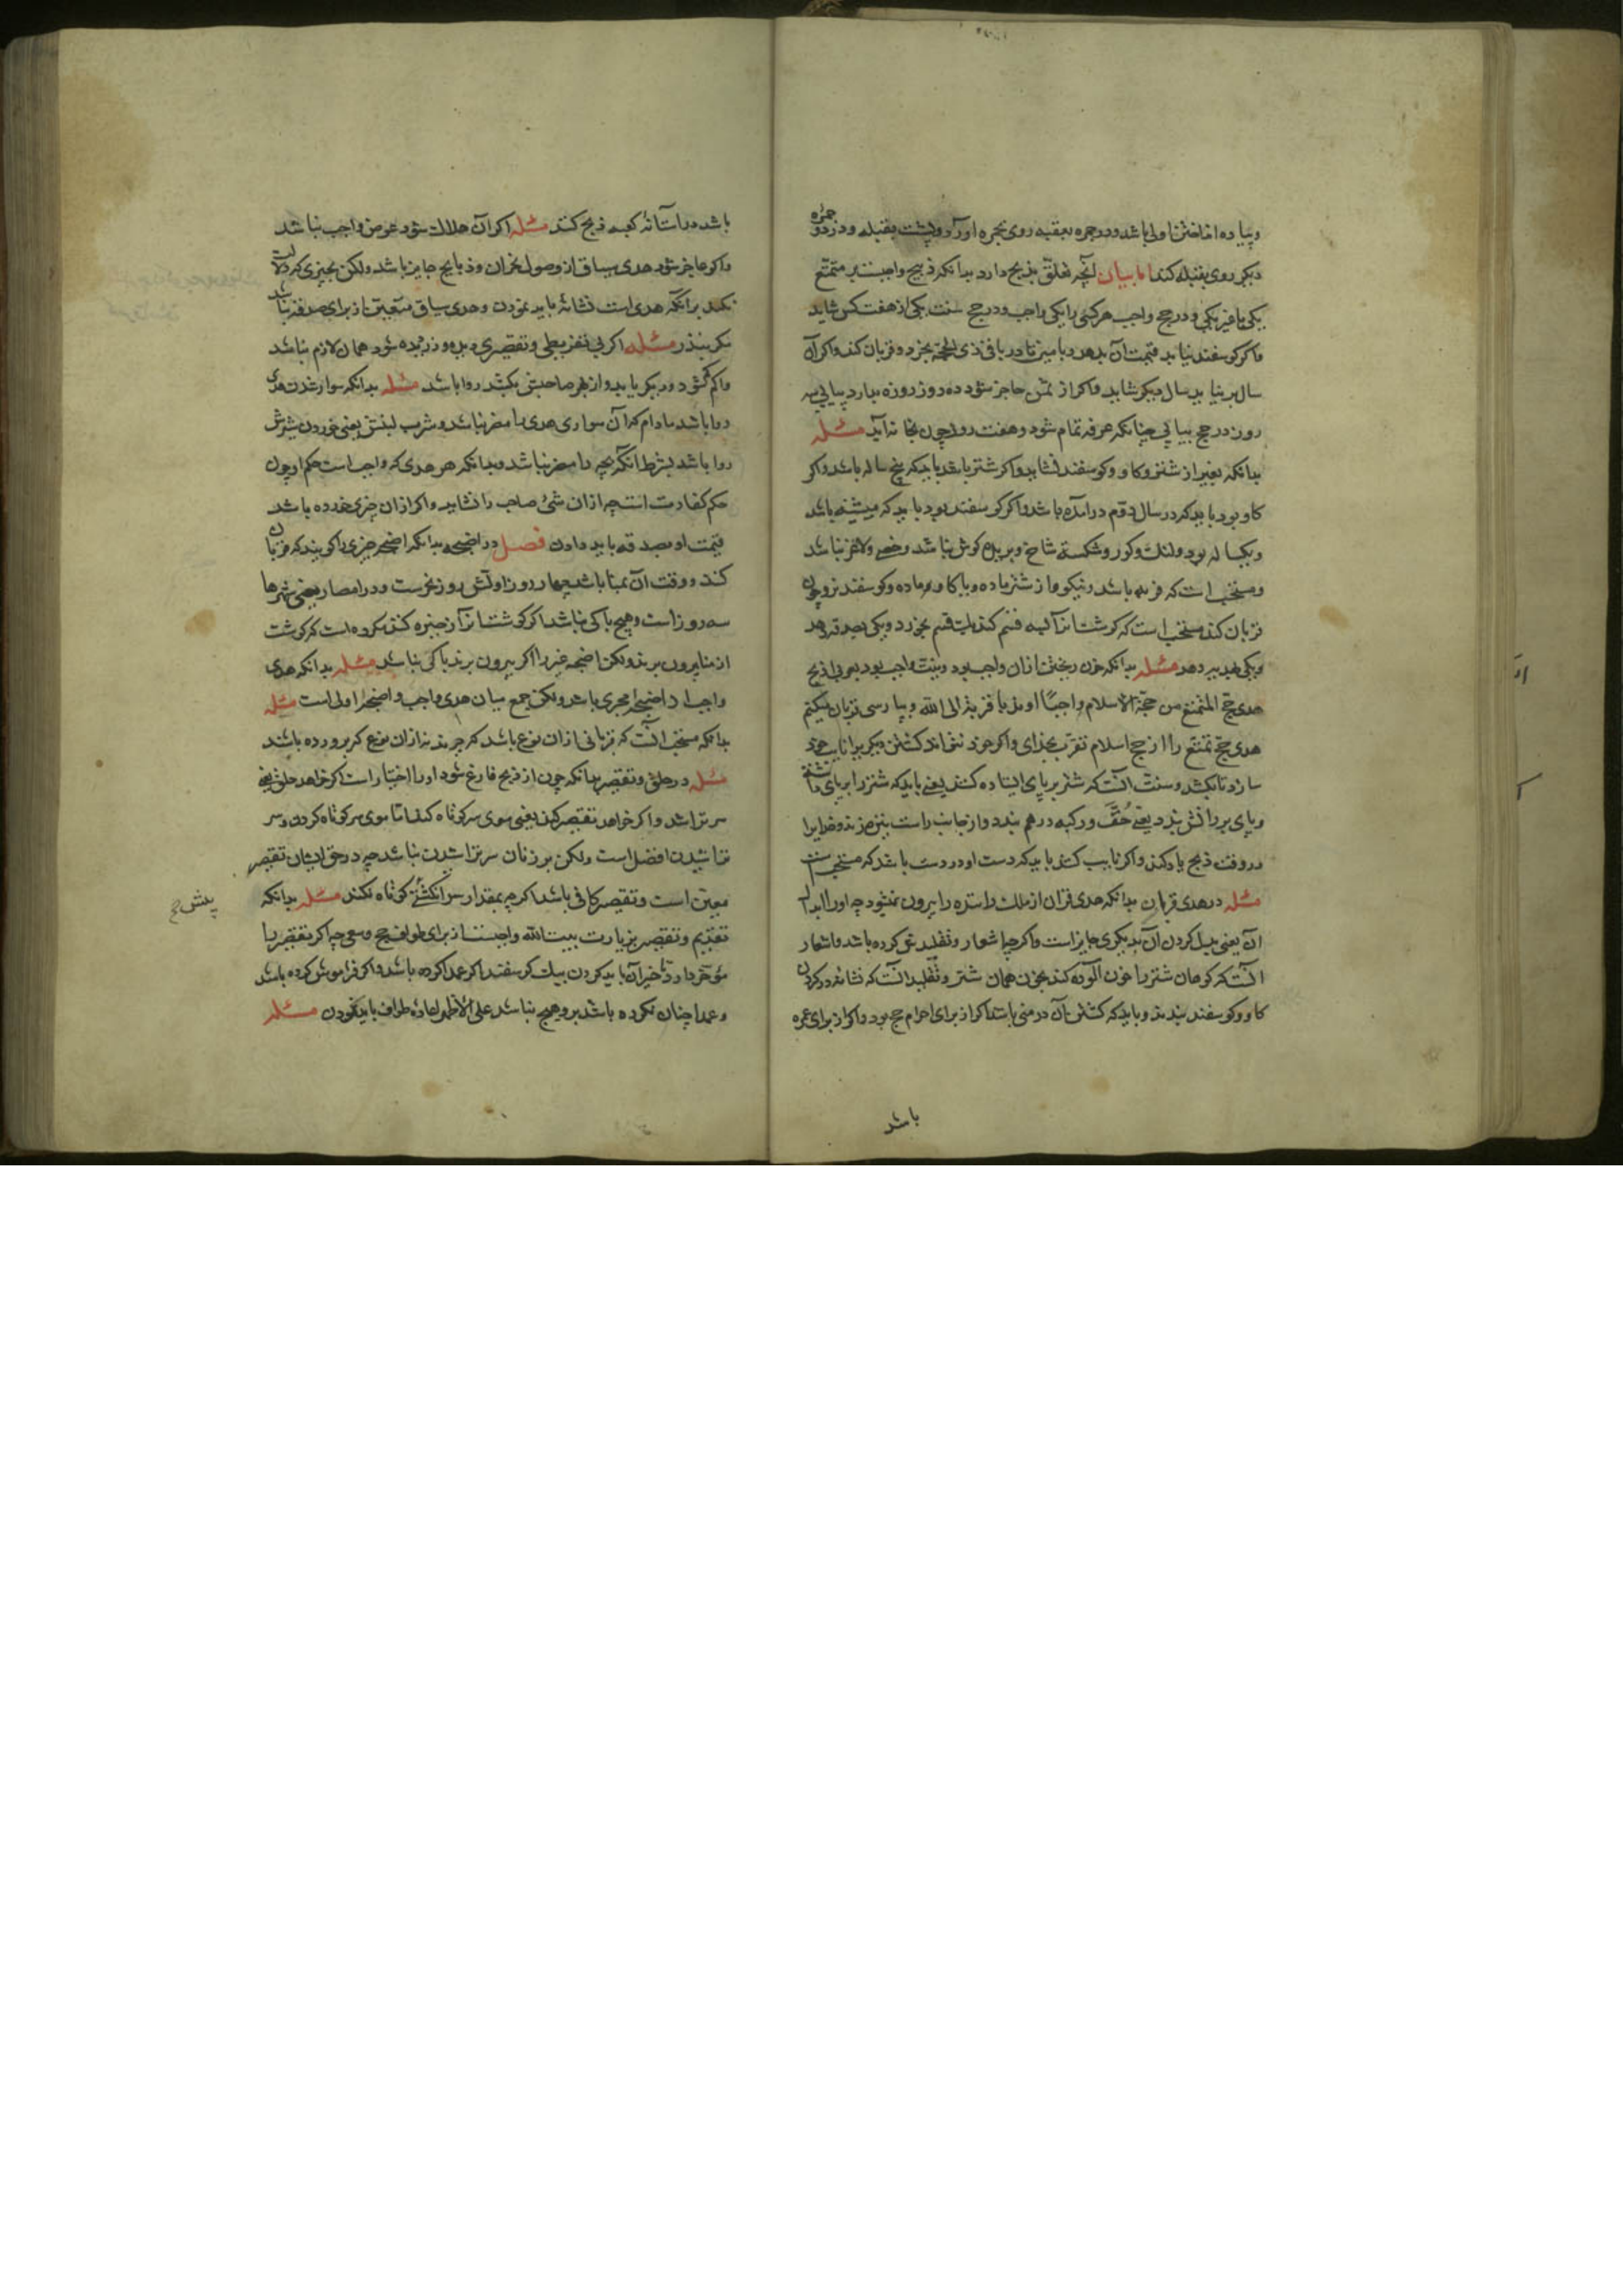 و پیاده انداختن اولی باشد و در جمره عقبه روی بجمره آورد و پشت بقبله و در دو جمره
دیکر روی بقبله کند اما بیان آنچه تعلق بذبح دارد بدانکه ذبح واجبست بر متمتع
یکی یا غیر یکی و در حج واجب هر کسی را یکی واجب و در حج سنت یکی از هفت کس شاید
و اکر کوسفند نیابد قیمت آن بدهد بامینی تا در باقی ذی الحجه بخرد و قربان کند و اکر آن
سال نیابد سال دیکر شاید و اکر از ثمن عاجز شود ده روز روزه بدارد سه
روز در حج پیاپی چنانکه عرفه تمام شود و هفت روز چون بخانه آید مسئله
بدانکه بغیر از شتر و کاو و کوسفند نشاید و اکر شتر باشد باید که پنج ساله باشد و اکر
کاو بود باید که در سال دوم درآمده باشد و اکر کوسفند بود باید که میشینه باشد
و یکساله بود و لنک و کور و شکسته شاخ و بریده کوش نباشد و خصی و لاغر نباشد
و مستحب است که فربه باشد و نیکو و از شتر ماده و یا کاو ماده و کوسفند نر و چون
قربان کند مستحب است که کوشت آنرا سه قسم کند یک قسم بخورد و یکی بصدقه دهد
و یکی هدیه دهد مسئله بدانکه خون ریختن از آن واجب بود و نیت واجب بود اذبح
هدی حج المتمتع من حجة الاسلام واجبا قربة الی الله و بپارسی قربان میکنم
هدی حج تمتع را از حج اسلام تقرب بخدای و اکر خود نتواند کشتن دیکری را نایب خود
سازد تا بکشد و سنت آنست که شتر بر پای ایستاده کنند یعنی باید که شتر را بر پای داشته
و پای بر زانوش بندد یعنی خف و رکبه در هم بندد و از جانب راست بنیزه زند و خدایرا
در وقت ذبح یاد کند و اکر نایب کند باید که دست او در دست باشد که مستحب است
مسئله در هدی قربان بدانکه هدی قران از ملک راننده را بیرون نمیشود چه او را ابدال
آن یعنی بدل کردن آن بدیکری جایز است و اکر چه اشعار و تقلیدش کرده باشد و اشعار
آنست که کوهان شتر را خون آلوده کند بخون همان شتر و تقلید آنست که نشانه در کردن
کاو و کوسفند بندند و باید که کشتن آن در منی باشد اکر از برای احرام حج بود و اکر از برای عمره
باشد
باشد در آستانه کعبه ذبح کند مسئله اکر آن هلاک شود عوض واجب نباشد
و اکر عاجز شود هدی سیاق از وصول نحر آن و ذبایح جایز باشد ولکن بچیزی که دلالت
کند بر آنکه هدی است نشانه باید نمودن و هدی سیاق متعین از برای صدقه نباشد
مکر بنذر مسئله اکر بی تفریطی و تقصیری دزدیده شود ضمان لازم نباشد
و اکر کم شود و دیکری یابد و از بهر صاحبش بکشد روا باشد مسئله بدانکه سوار شدن هدی
روا باشد مادام که آن سواری هدی را مضر نباشد و شرب لبنش یعنی خوردن شیرش
روا باشد بشرط آنکه بچه را مضر نباشد و بدانکه هر هدی که واجب است حکم او چون
حکم کفارت است چه از آن شیٔ صاحب را نشاید و اکر از آن چیزی خورده باشد
قیمت او بصدقه باید دادن فصل در اضحیه بدانکه اضحیه چیزی را کویند که قربان
کند و وقت آن بمنا باشد چهار روز اولش روز نحرست و در امصار یعنی شهرها
سه روز است و هیچ باکی نباشد اکر کوشت آنرا ذخیره کند مکروه است که کوشت
از منا بیرون برند ولکن اضحیه غیر را اکر بیرون برند باکی نباشد مسئله بدانکه هدی
واجب از اضحیه مجزی باشد ولکن جمع میان هدی واجب و اضحیه اولی است مسئله
بدانکه مستحب آنست که قربانی از آن نوع باشد که خرند نه از آن نوع که پرورده باشند
مسئله در حلق و تقصیر بدانکه چون از ذبح فارغ شود او را اختیار است اکر خواهد حلق یعنی
سر تراشد و اکر خواهد تقصیر کند یعنی موی سر کوتاه کند اما موی سر کوتاه کردن و سر
تراشیدن افضل است ولکن بر زنان سر تراشیدن نباشد چه در حق ایشان تقصیر
معین است و تقصیر کافی باشد اکر چه بمقدار سر انکشتی کوتاه نکند مسئله بدانکه
تقدیم و تقصیر بزیارت بیت الله واجبست از برای طواف حج و سعی چه اکر تقصیر را
مؤخر دارد تأخیر آن باید کردن بیک کوسفند اکر عمدا کرده باشد و اکر فراموش کرده باشد
و عمدا چنان نکرده باشد برو هیچ نباشد علی الاظهر اعاده طواف باید نمودن مسئله
پیش ح